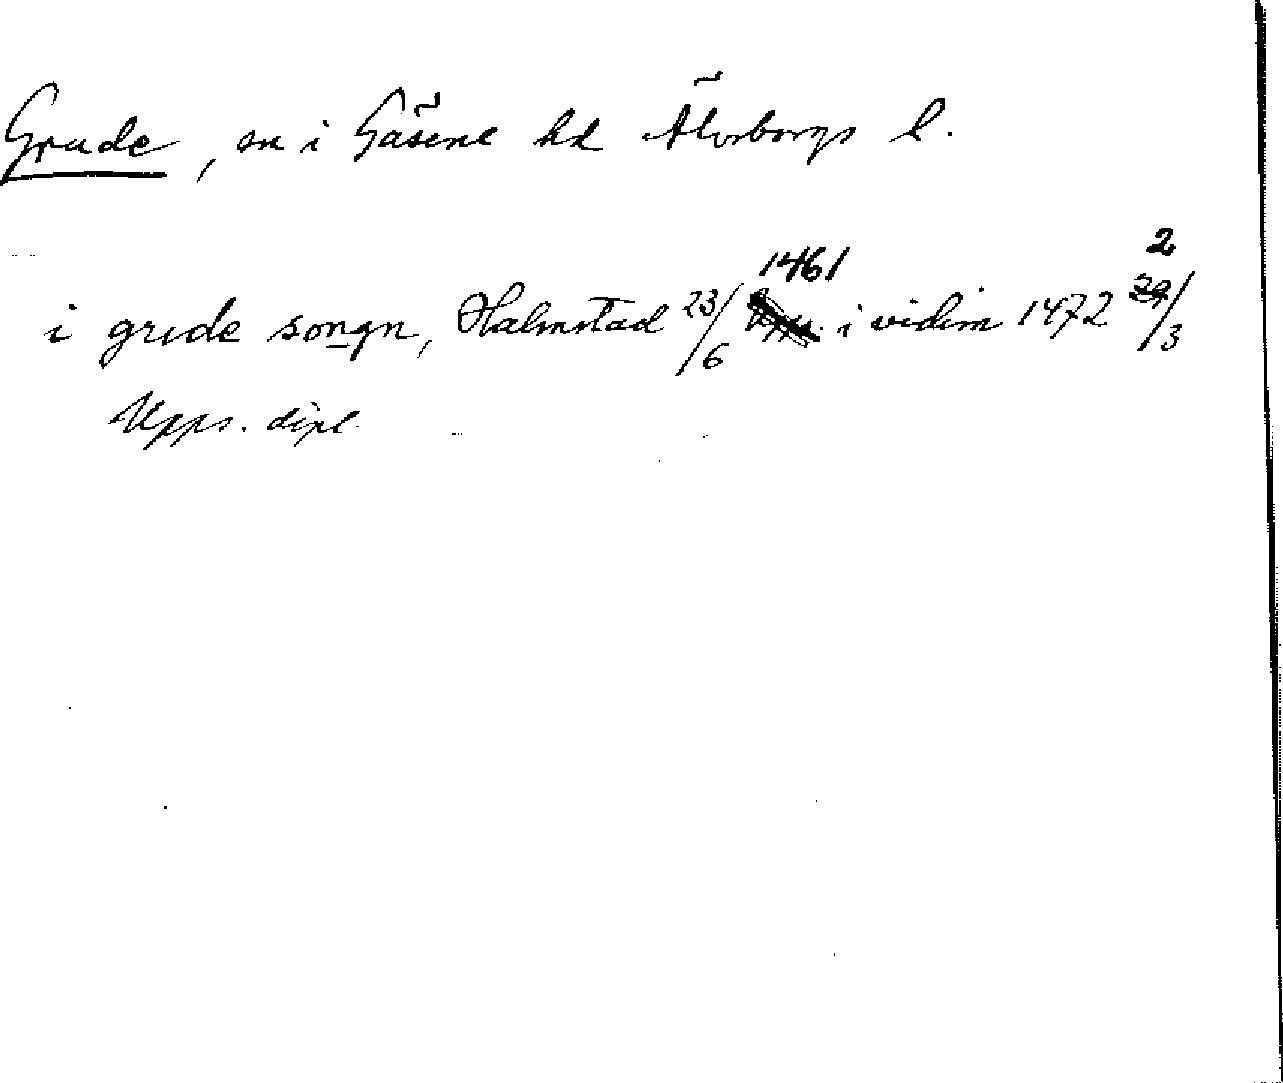 Grude, sn i Gäsene hd Älvsborgs l.
i grude songn, Halmstad 23/6 1461 i vidim 1472 2/3
Upps. dipl.